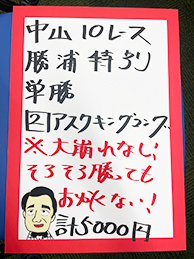 中山10レース
勝浦特別
単勝
②アスクキングコング
※大崩れなし!
そろそろ勝っても
おかしくない!
計5000円